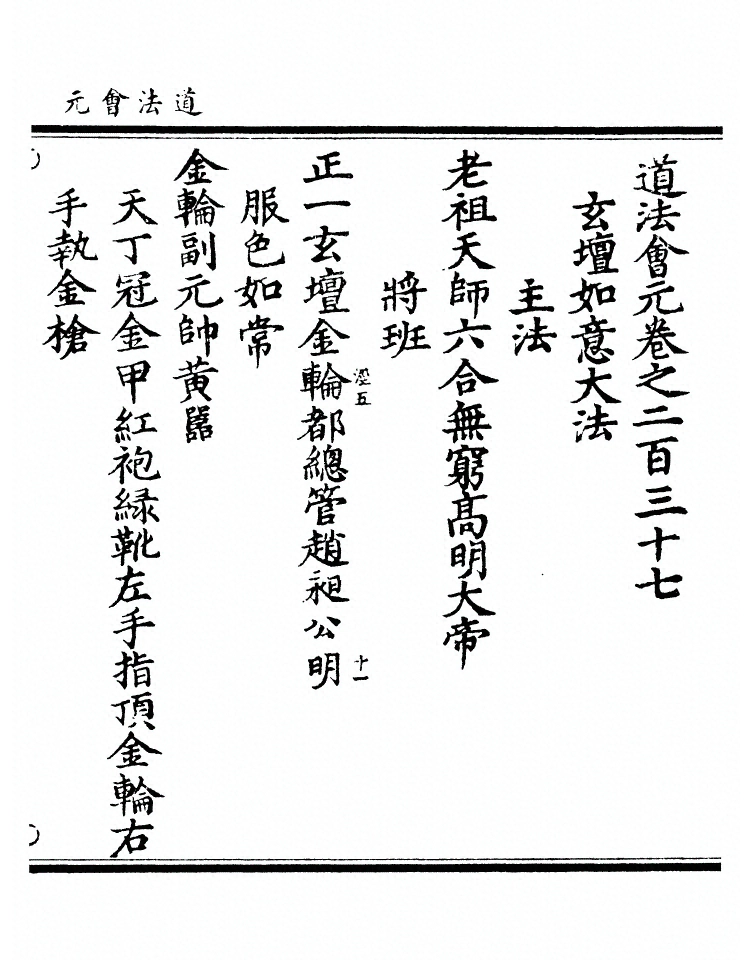 道法會元
道法會元卷之二百三十七
玄壇如意大法
主法
老祖天師六合無窮高明大帝
將班
正一玄壇金輪都總管趙昶公明
涇五
十一
服色如常
金輪副元帥黃嚚
天丁冠金甲紅袍綠靴左手指頂金輪右
手執金槍